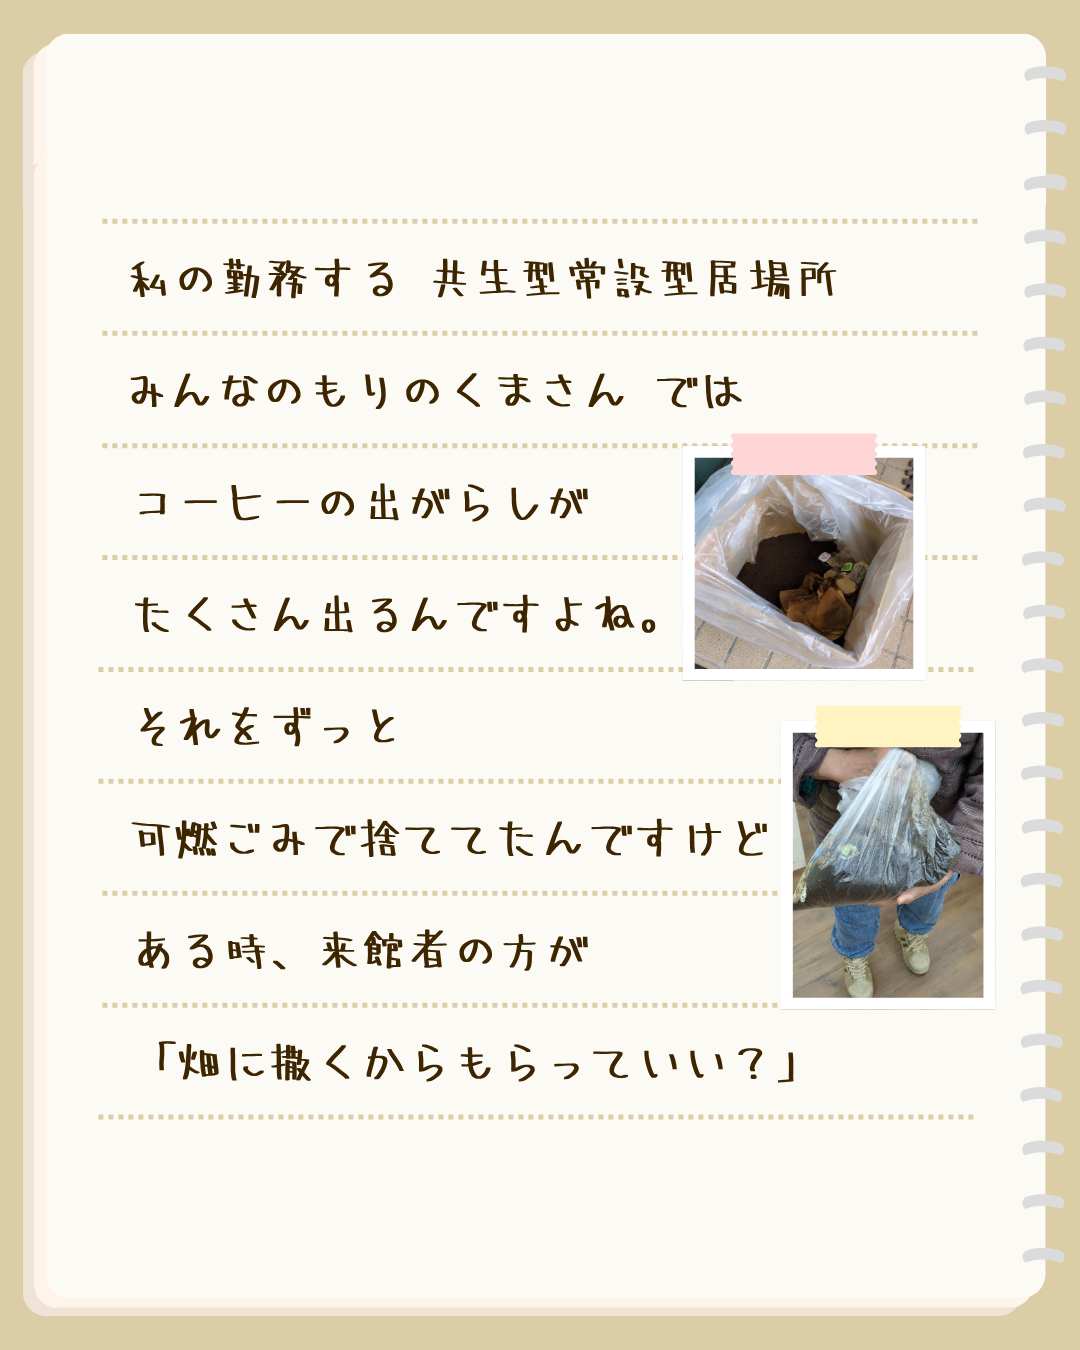 私の勤務する 共生型常設型居場所
みんなのもりのくまさん では
コーヒーの出がらしが
たくさん出るんですよね。
それをずっと
可燃ごみで捨ててたんですけど
ある時、来館者の方が
「畑に撒くからもらっていい？」